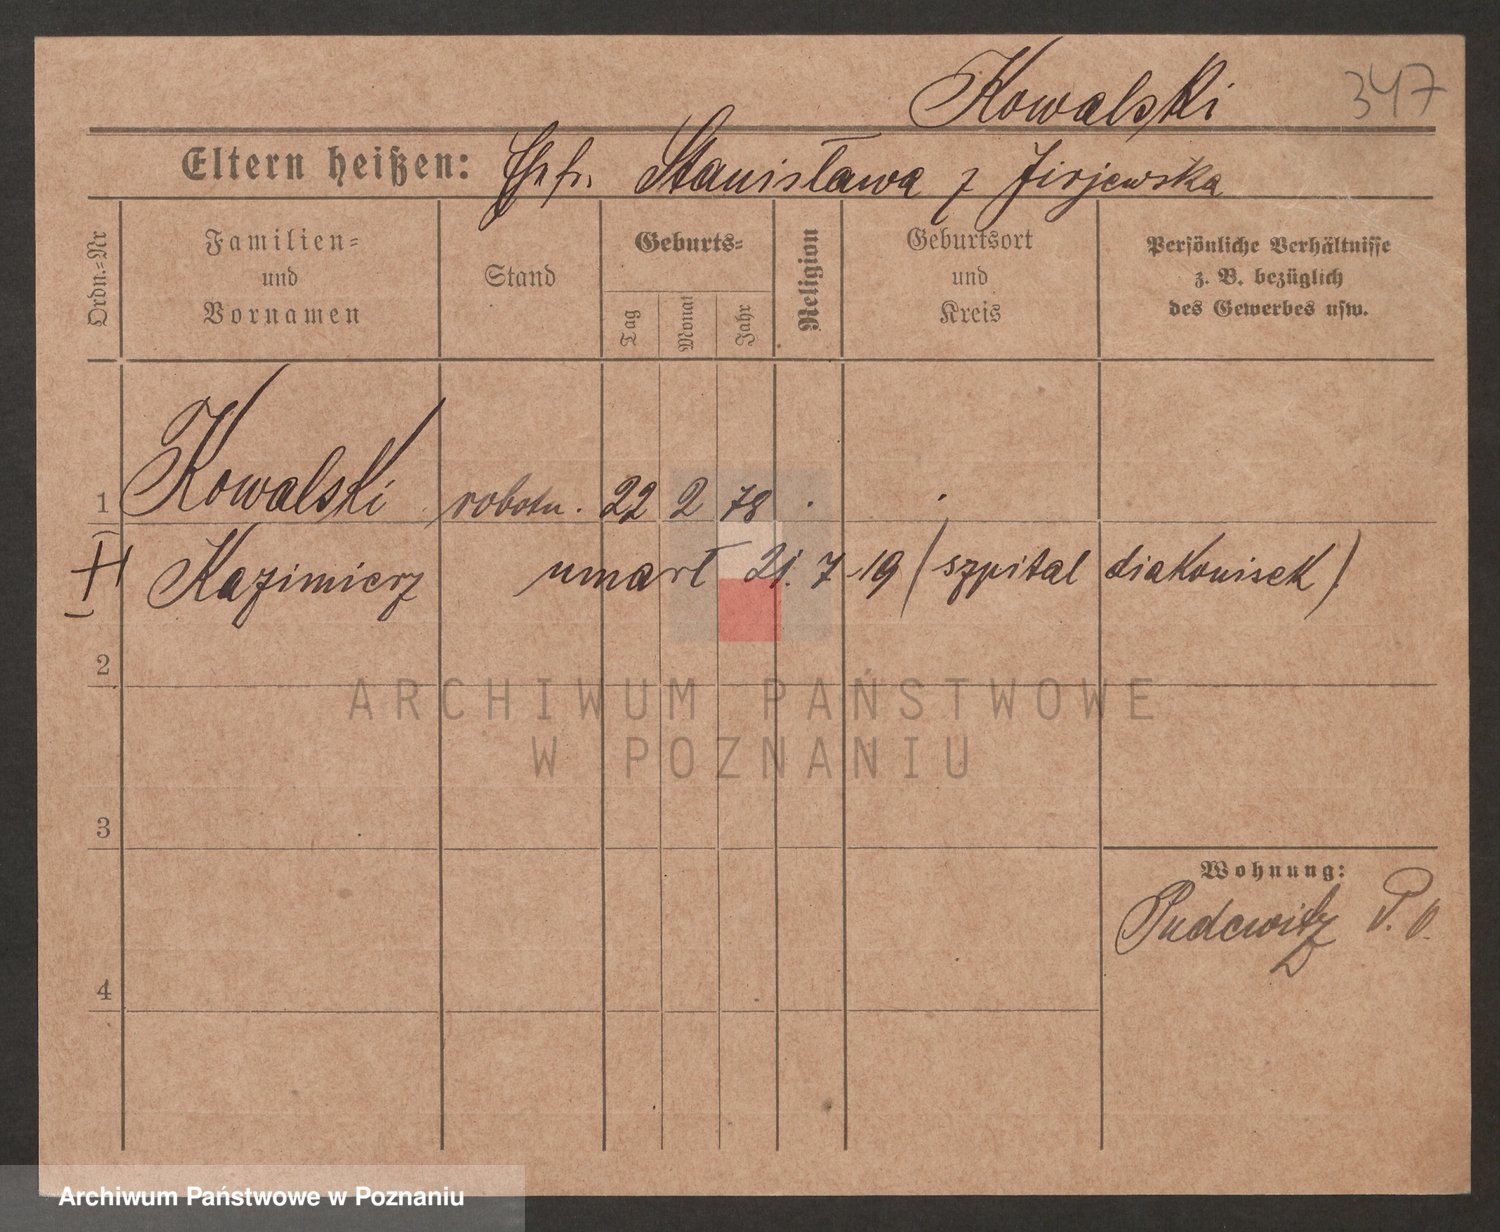 Kowalski 347
Eltern heißen: Ehfr. Stanisława z Jirjewska
Ordn.=Nr
Familien=
und
Vornamen
Stand
Geburts=
Tag
Monat
Jahr
Religion
Geburtsort
und
Kreis
Persönliche Verhältnisse
z. B. bezüglich
des Gewerbes usw.
1 Kowalski robotn. 22 2 78
Kazimierz umarł 21. 7 19 (szpital diakonisek)
2
3
4
Wohnung:
Pudewitz P. O.
ARCHIWUM PAŃSTWOWE
W POZNANIU
Archiwum Państwowe w Poznaniu